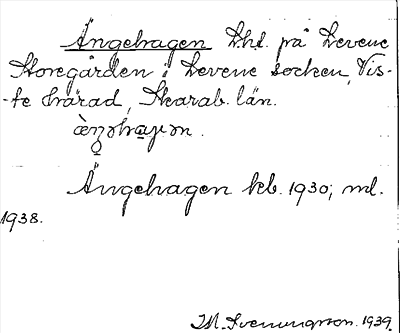 Ängehagen lht. på Levene
Storegården i Levene socken, Vis-
-te härad, Skarab. län.
Ängehagen kb. 1930; ml.
1938.
I M. Svenungsson. 1939.